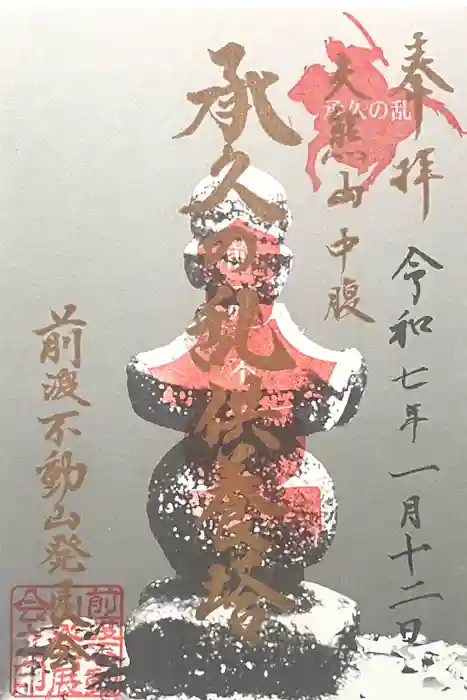 奉拝
令和七年一月十二日
承久の乱
大熊山中腹
承久の乱供養塔
前渡不動山発展会